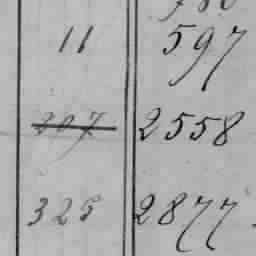 11 597
207 2558
325 2877